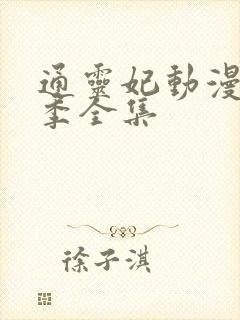 通靈妃動漫
季全集
徐子淇